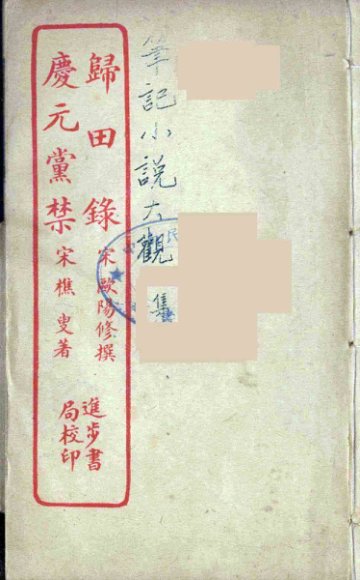 筆記小說大觀 集
歸田錄 宋歐陽修撰
慶元黨禁 宋樵叟著
進步書
局校印